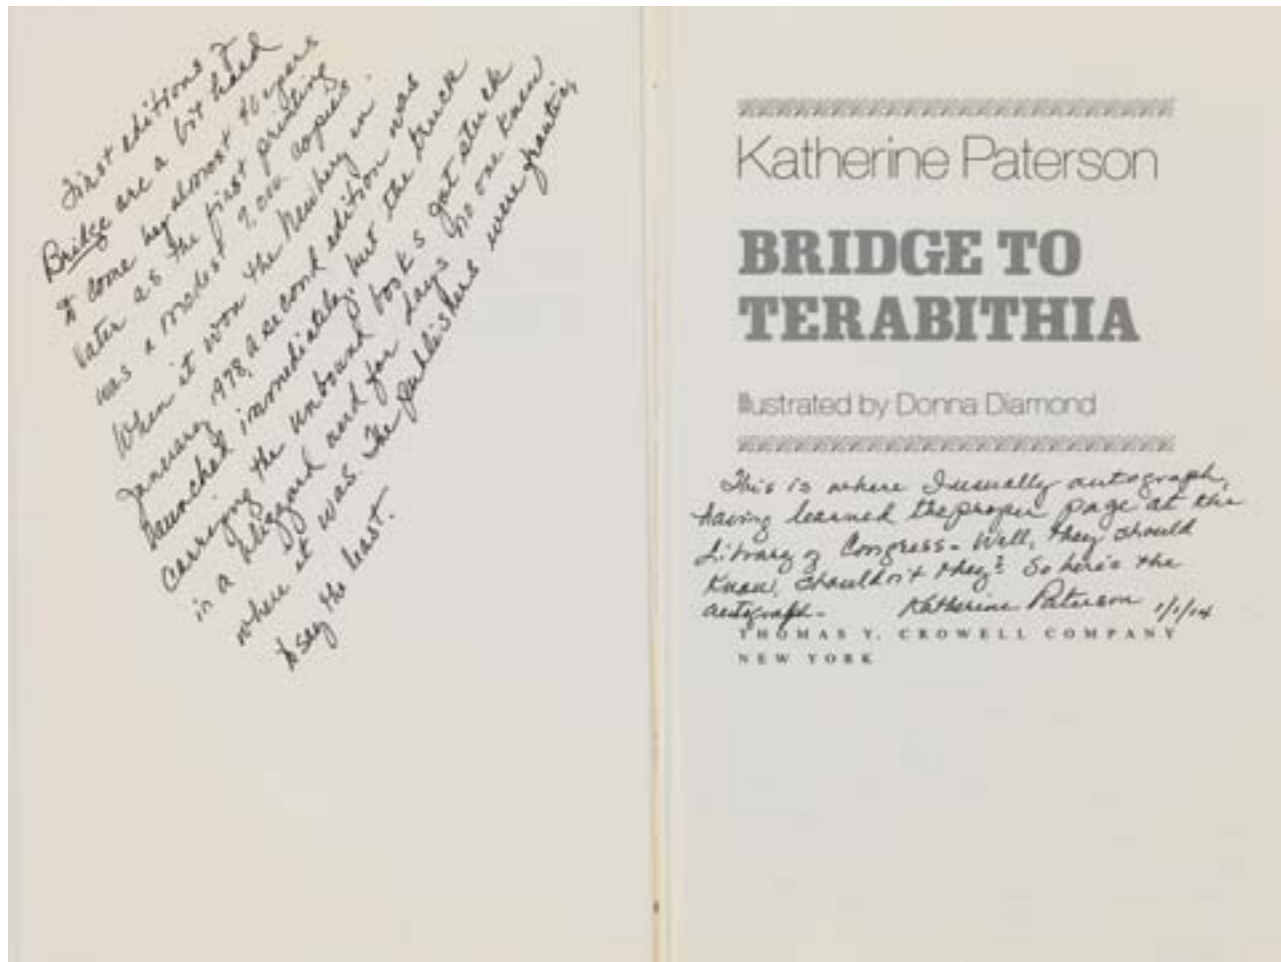 First editions of
Bridge are a bit hard
to come by almost 40 years
later as the first printing
was a modest 7,000 copies.
When it won the Newbery in
January 1978, a second edition was
launched immediately, but the truck
carrying the unbound books got stuck
in a blizzard and for days no one knew
where it was. The publishers were frantic,
to say the least.
Katherine Paterson
BRIDGE TO
TERABITHIA
Illustrated by Donna Diamond
This is where I usually autograph,
having learned the proper page at the
Library of Congress. Well, they should
know, shouldn't they? So here's the
autograph. Katherine Paterson 1/1/14
THOMAS Y. CROWELL COMPANY
NEW YORK